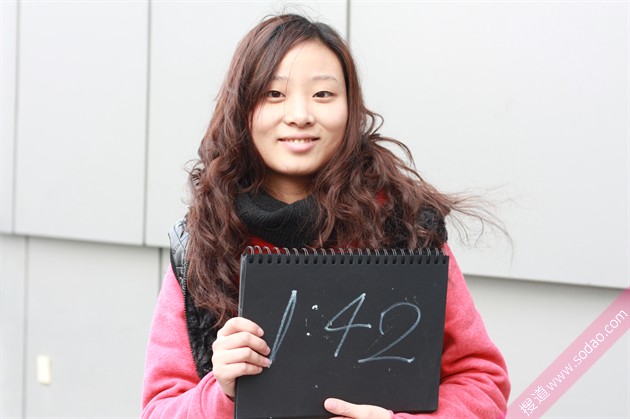 1.42
搜道 www.sodao.com